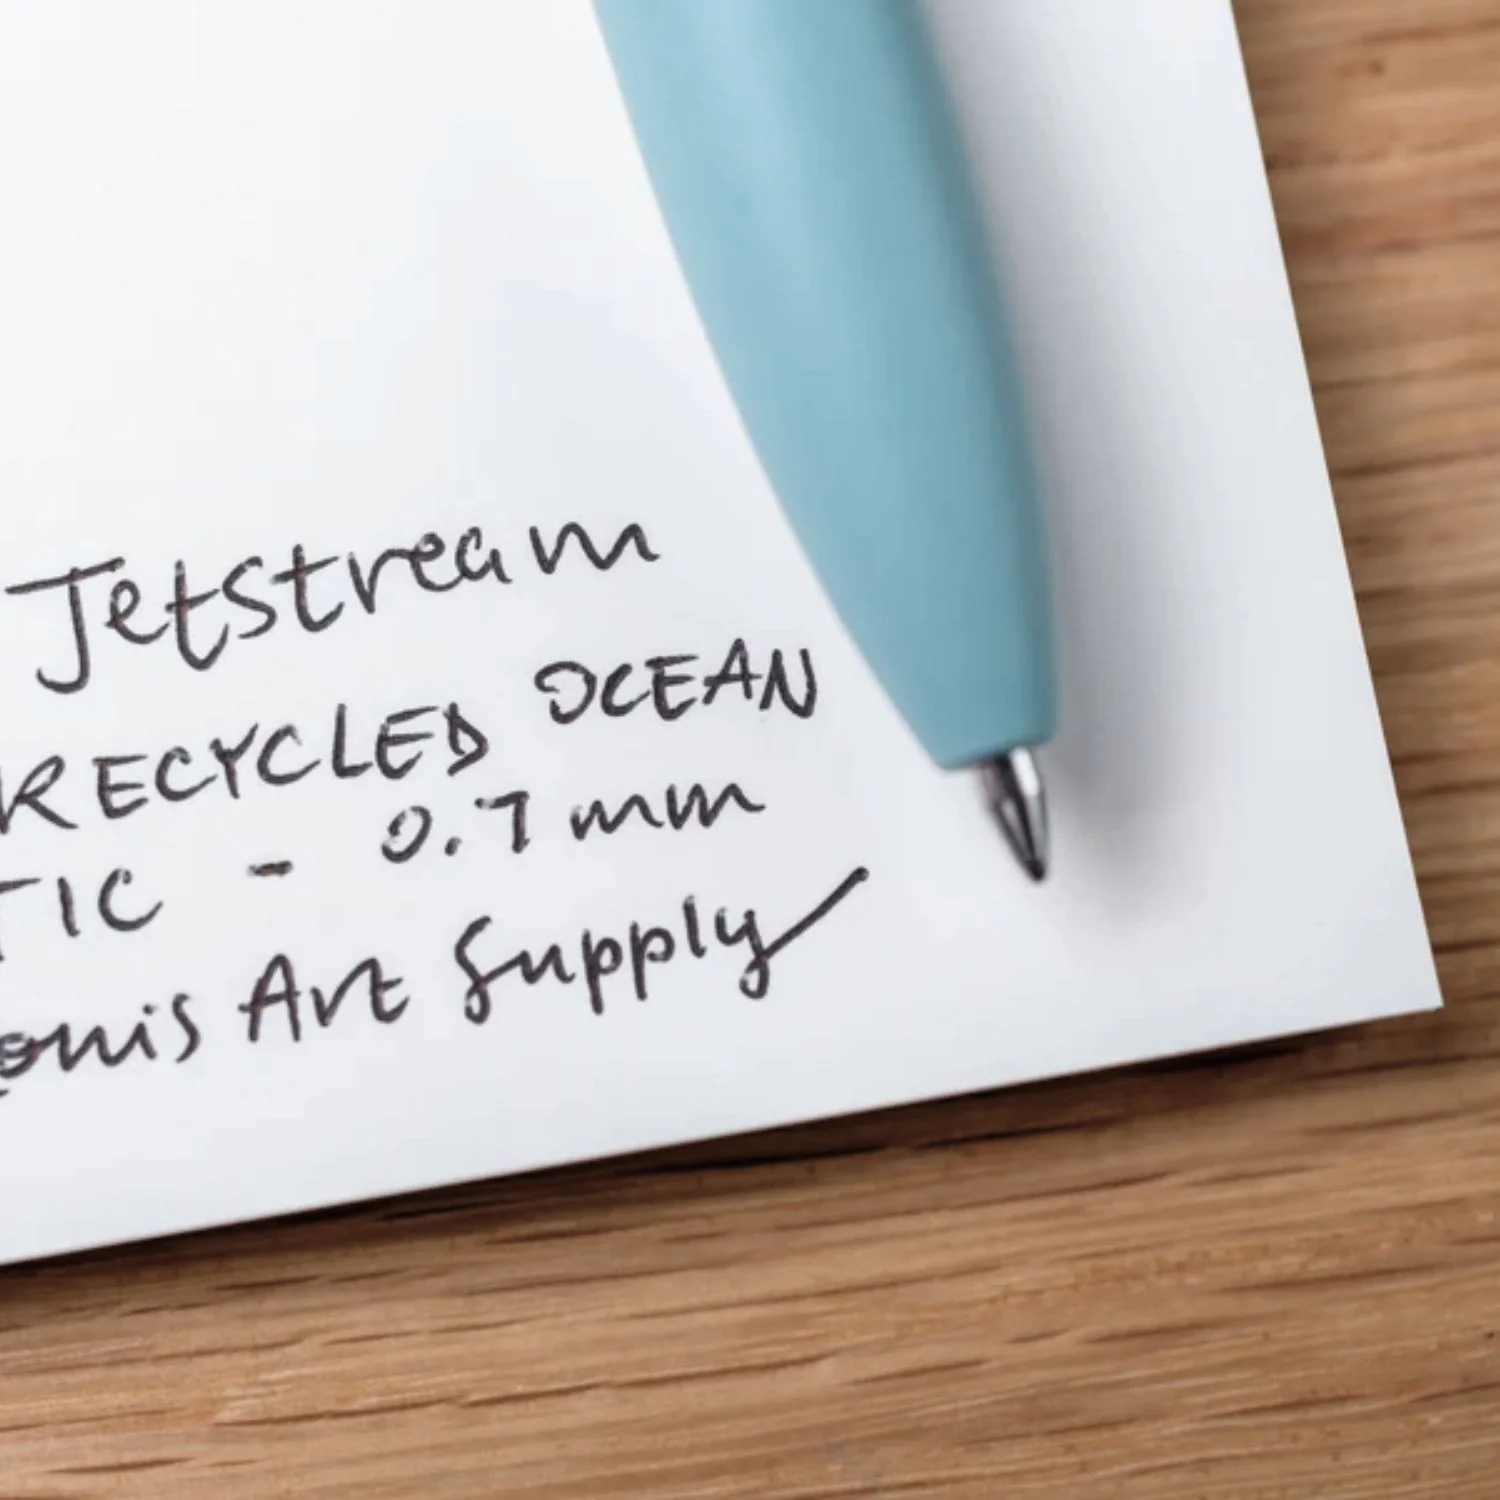 Jetstream
RECYCLED OCEAN
TIC - 0.7 mm
Art Supply